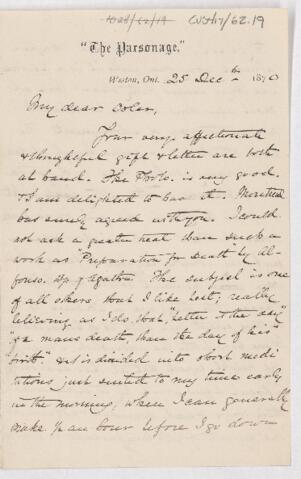 CUS417/62.19
"The Parsonage."
Weston, Ont. 25 Decbr 1870
My dear Osler,
Your very affectionate
& thoughtful gift & letter are both
at hand. The Photo. is very good.
& I am delighted to have it. Montreal
has surely agreed with you. I could
not ask a greater treat than such a
work as "Preparation for death" by Al-
fonso. Bp of Agatha. The subject is one
of all others that I like best; really
believing as I do that "better is the day"
"of a mans death, than the day of his"
"birth". It is divided into short medi
tations just suited to my time early
in the morning, when I can generally
make up an hour before I go down